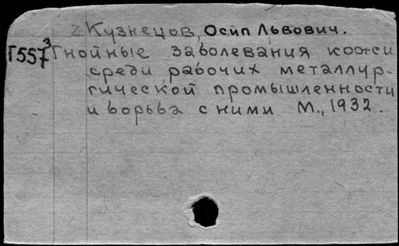 2 Кузнецов, Осип Львович.
Г557³ Гнойные заболевания кожи
среди рабочих металлур-
гической промышленности
и борьба с ними М., 1932.